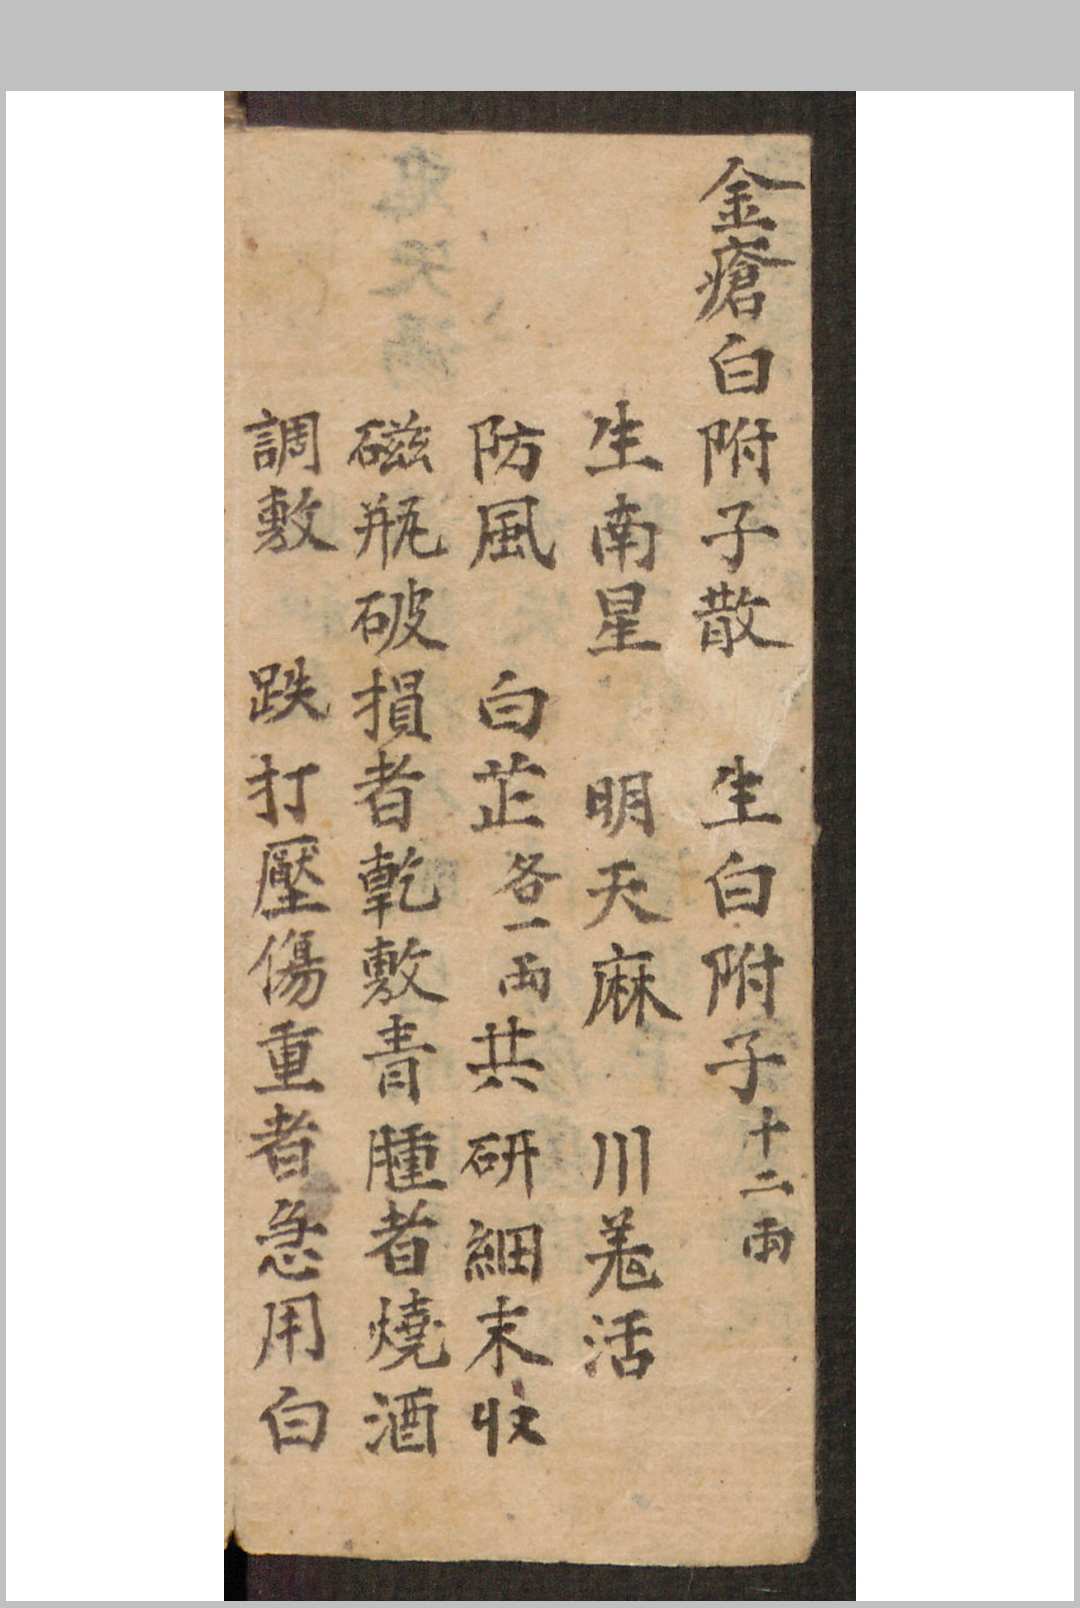 金瘡白附子散　生白附子十二兩
生南星　明天麻　川羗活
防風　白芷各一兩共研細末收
磁瓶破損者乾敷青腫者燒酒
調敷　跌打壓傷重者急用白